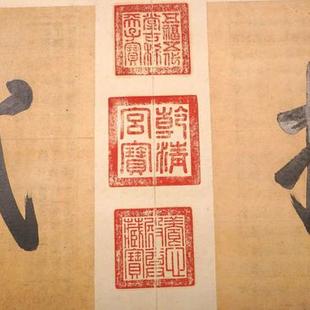 五福五代
堂古稀
天子寶
乾清
宮寶
養心
殿
藏寶